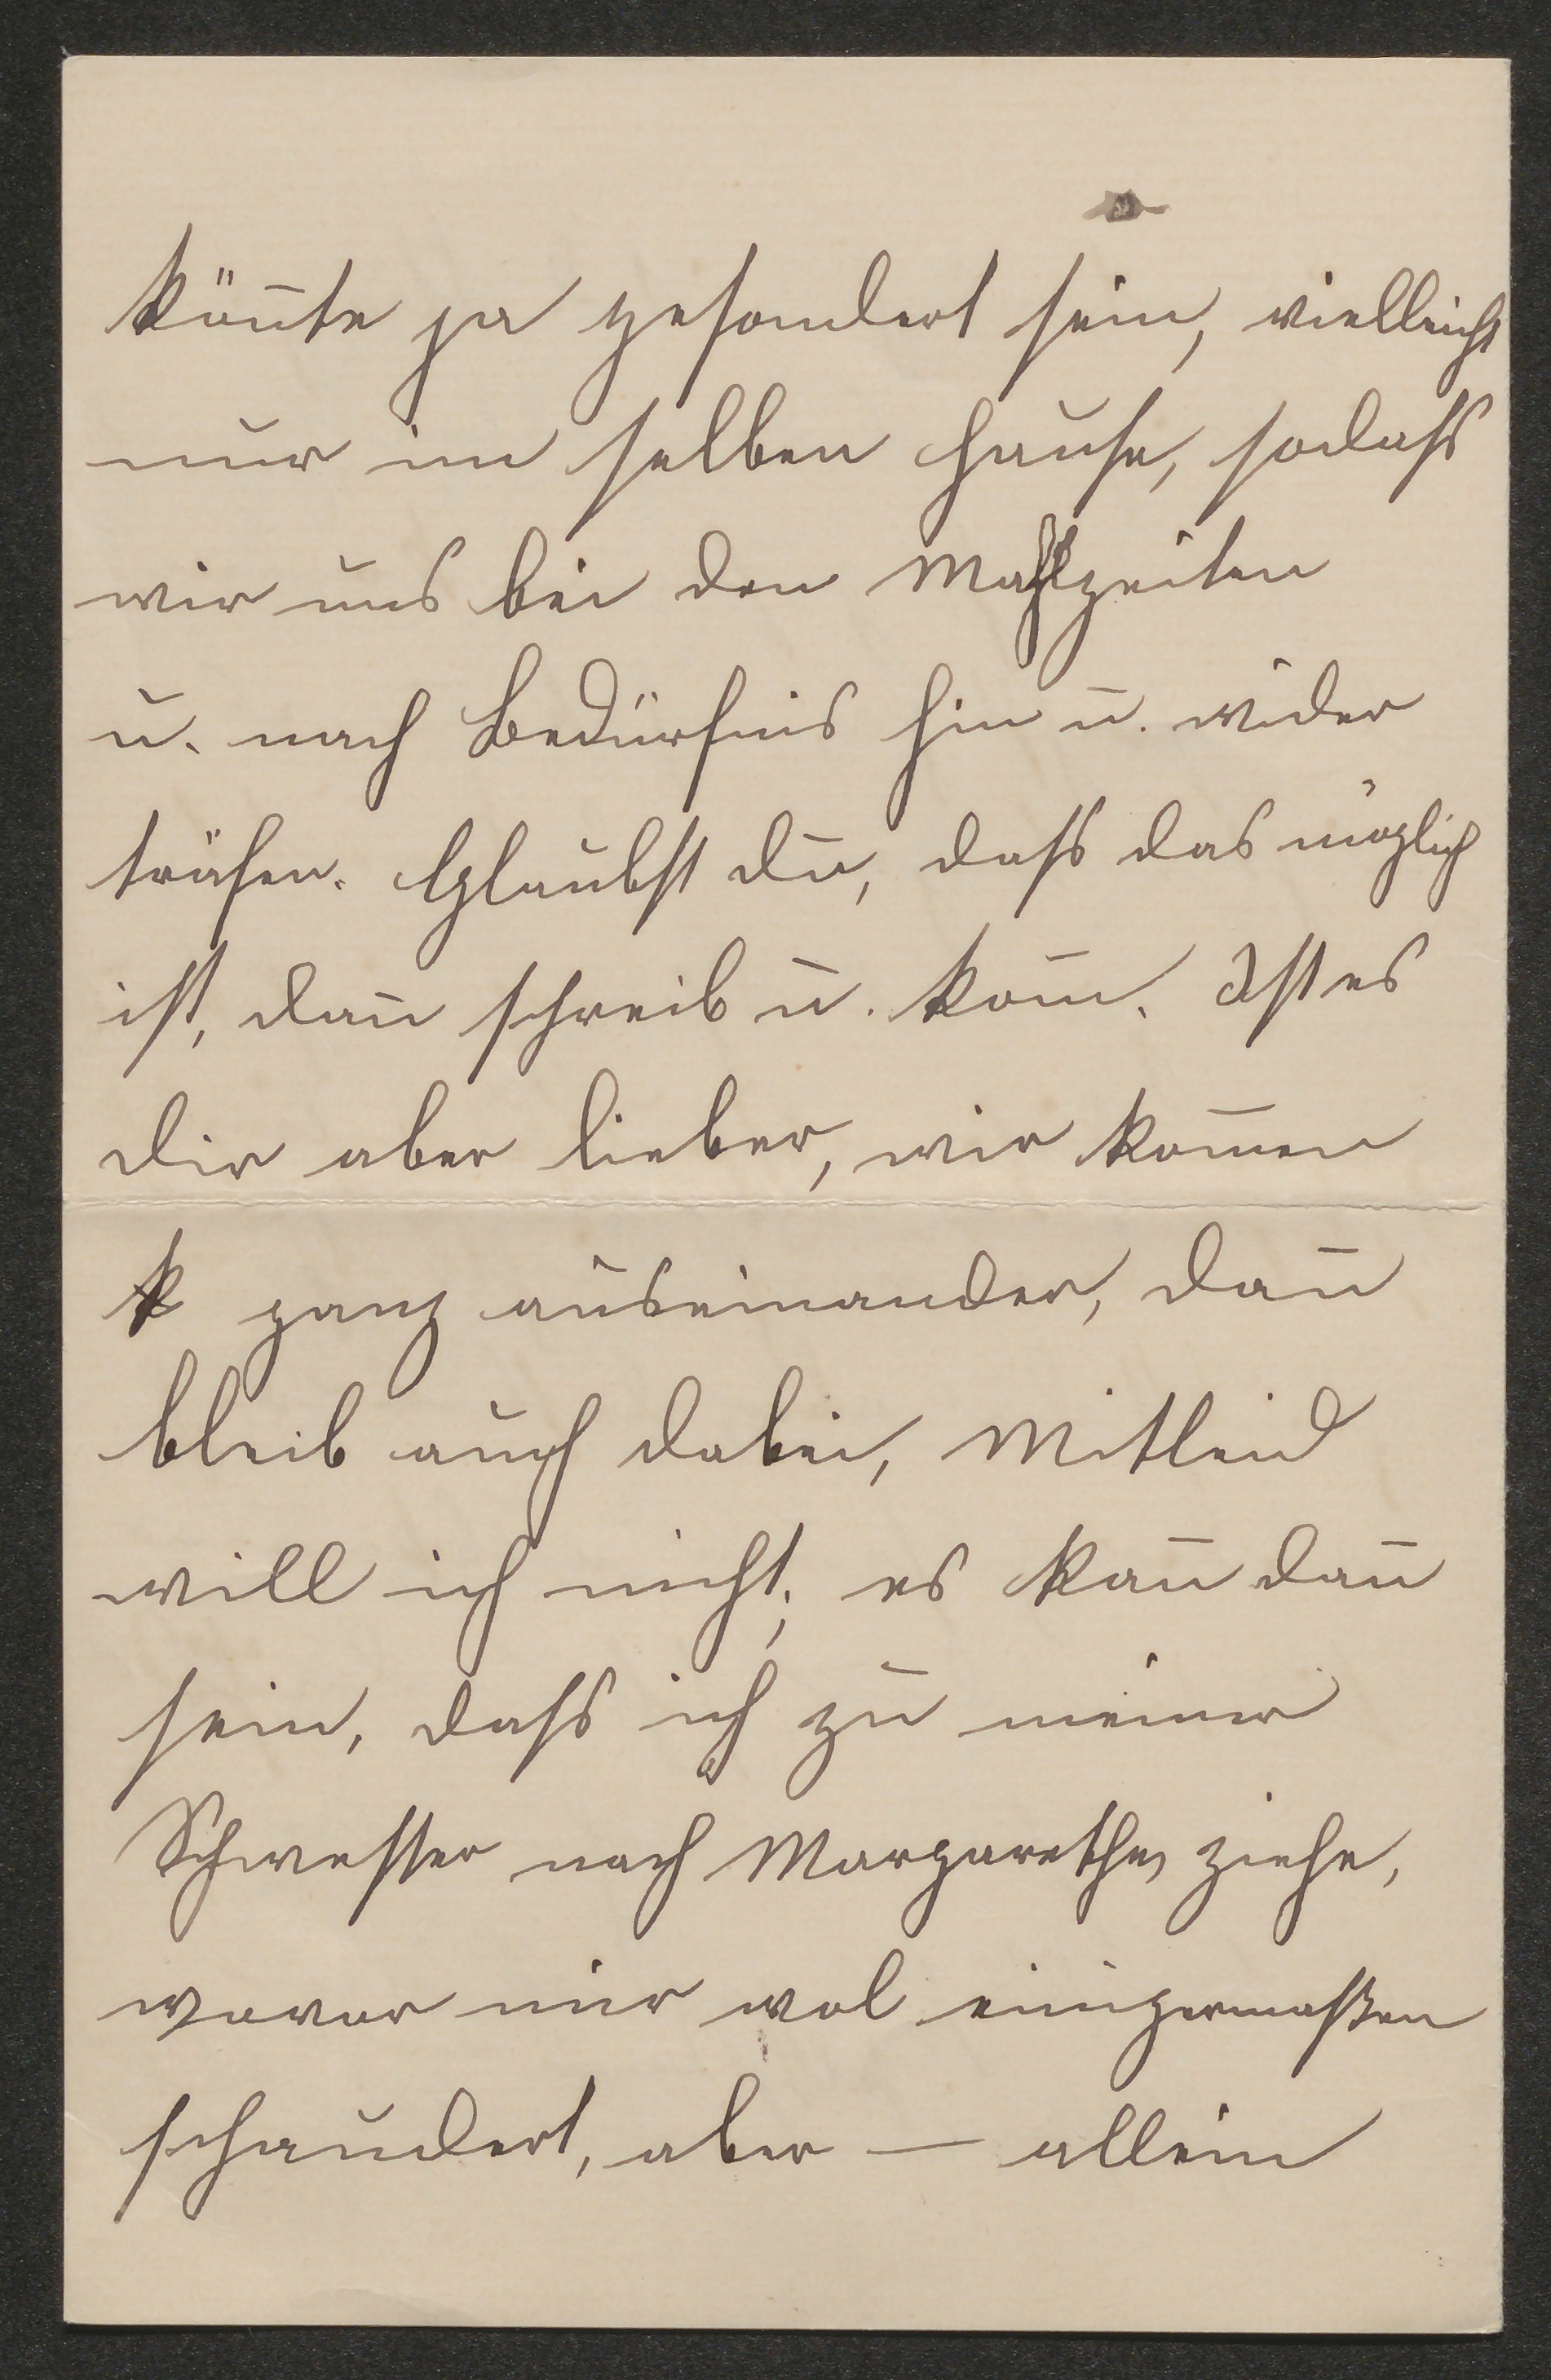 kön̄te ja gesondert sein, vielleicht
nur im selben Hause, sodass
wir uns bei den Mahlzeiten
u. nach Bedürfnis hin u. wider
träfen. Glaubst du, dass das möglich
ist, dan̄ schreib u. kom̄. Ist es
dir aber lieber, wir kom̄en
ganz auseinander, dan̄
bleib auch dabei, Mitleid
will ich nicht; es kan̄ dan̄
sein, dass ich zu meiner
Schwester nach Margarethen ziehe,
wovor mir wol einigermaßen
schaudert, aber — allein